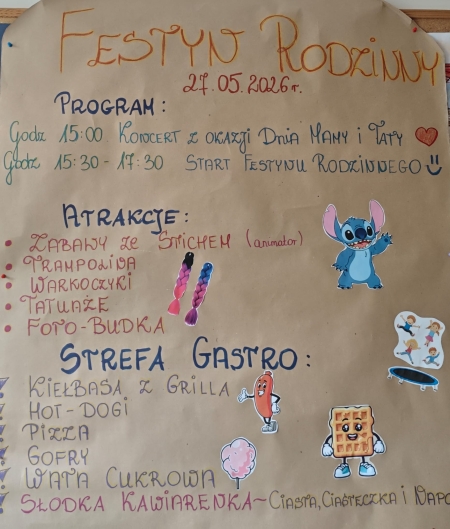 FESTYN RODZINNY
27.05.2026r.
PROGRAM:
Godz 15:00 KONCERT Z OKAZJI DNIA MAMY i TATY
Godz 15:30-17:30 START FESTYNU RODZINNEGO
ATRAKCJE:
• ZABAWY ZE STICHEM (animator)
• TRAMPOLINA
• WARKOCZYKI
• TATUAŻE
• FOTO-BUDKA
STREFA GASTRO:
KIEŁBASA Z GRILLA
HOT-DOGI
PIZZA
GOFRY
WATA CUKROWA
SŁODKA KAWIARENKA~CIASTA, CIASTECZKA i NAPO